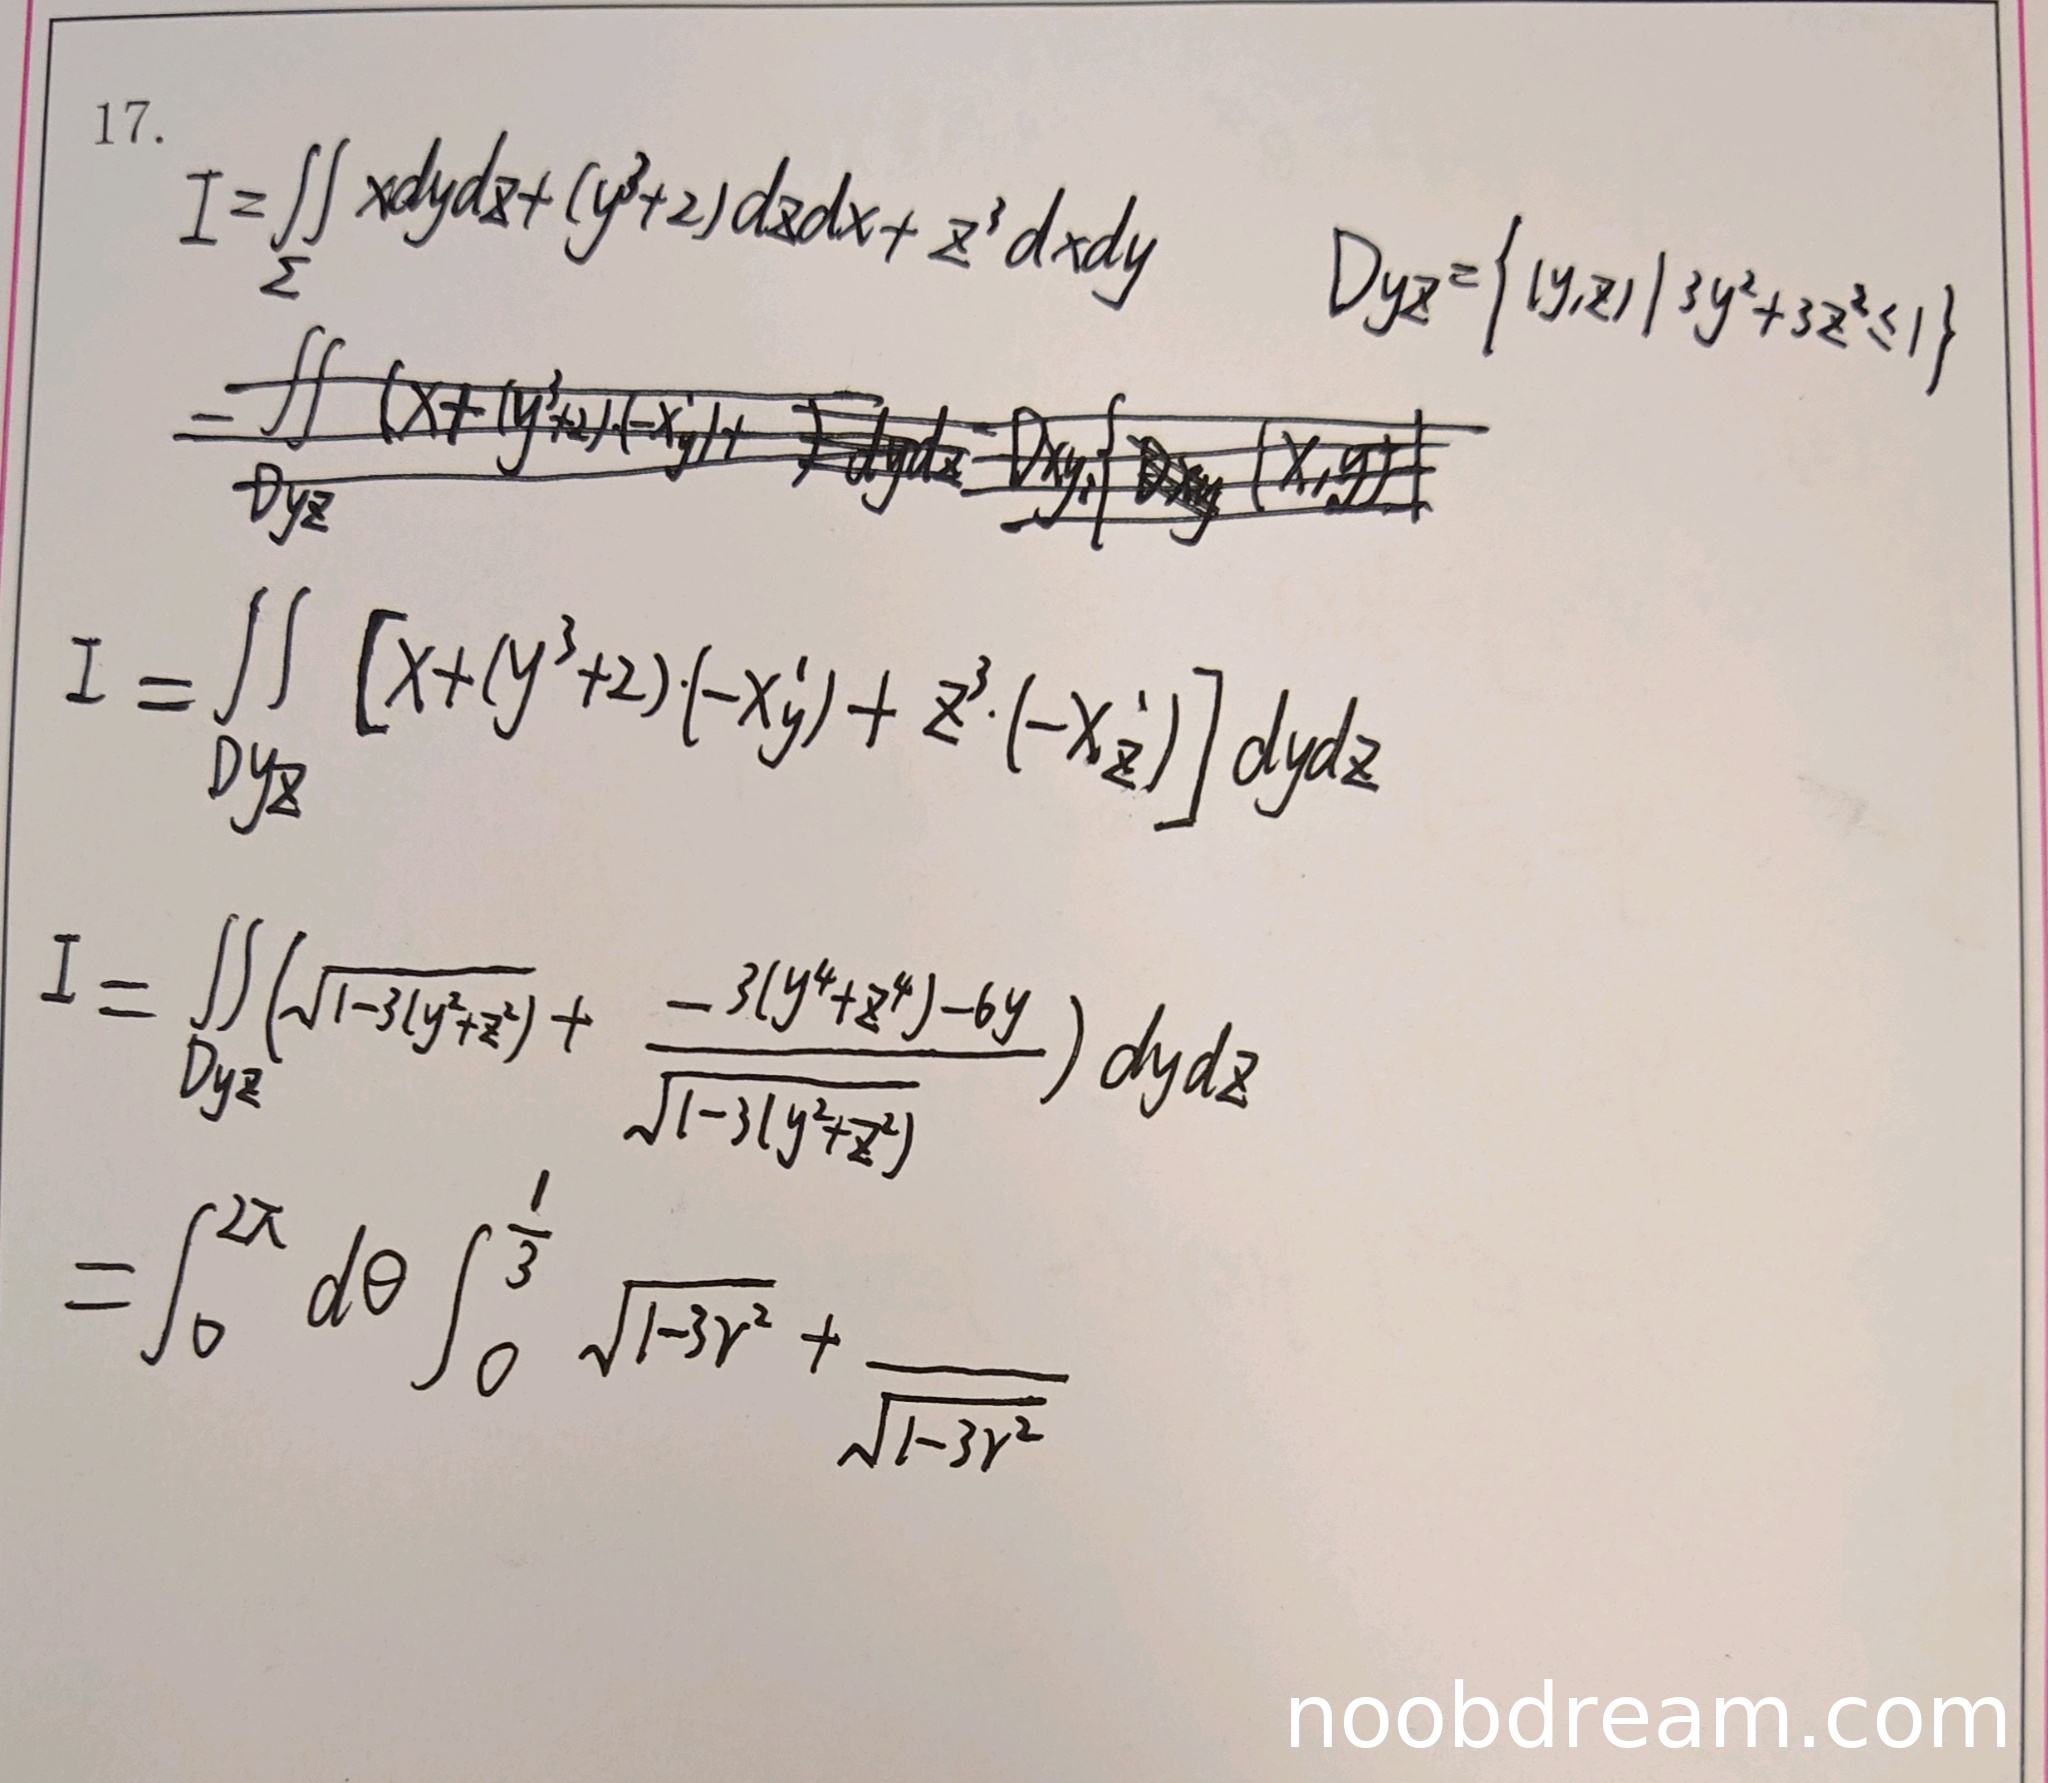 17.
I = ∬_Σ xdydz + (y³+2) dzdx + z³ dxdy
Dyz = { (y,z) | 3y²+3z² ≤ 1 }
= ∬_Dyz (x + (y³+2)·(-x'_y) + ) dydz Dxy { Dxy (x,y) |
I = ∬_Dyz [x + (y³+2)·(-x'_y) + z³·(-x'_z)] dydz
I = ∬_Dyz (√(1-3(y²+z²)) + (-3(y⁴+z⁴)-6y)/√(1-3(y²+z²))) dydz
= ∫₀^2π dθ ∫₀^(1/3) √(1-3r²) + ―/√(1-3r²)
noobdream.com